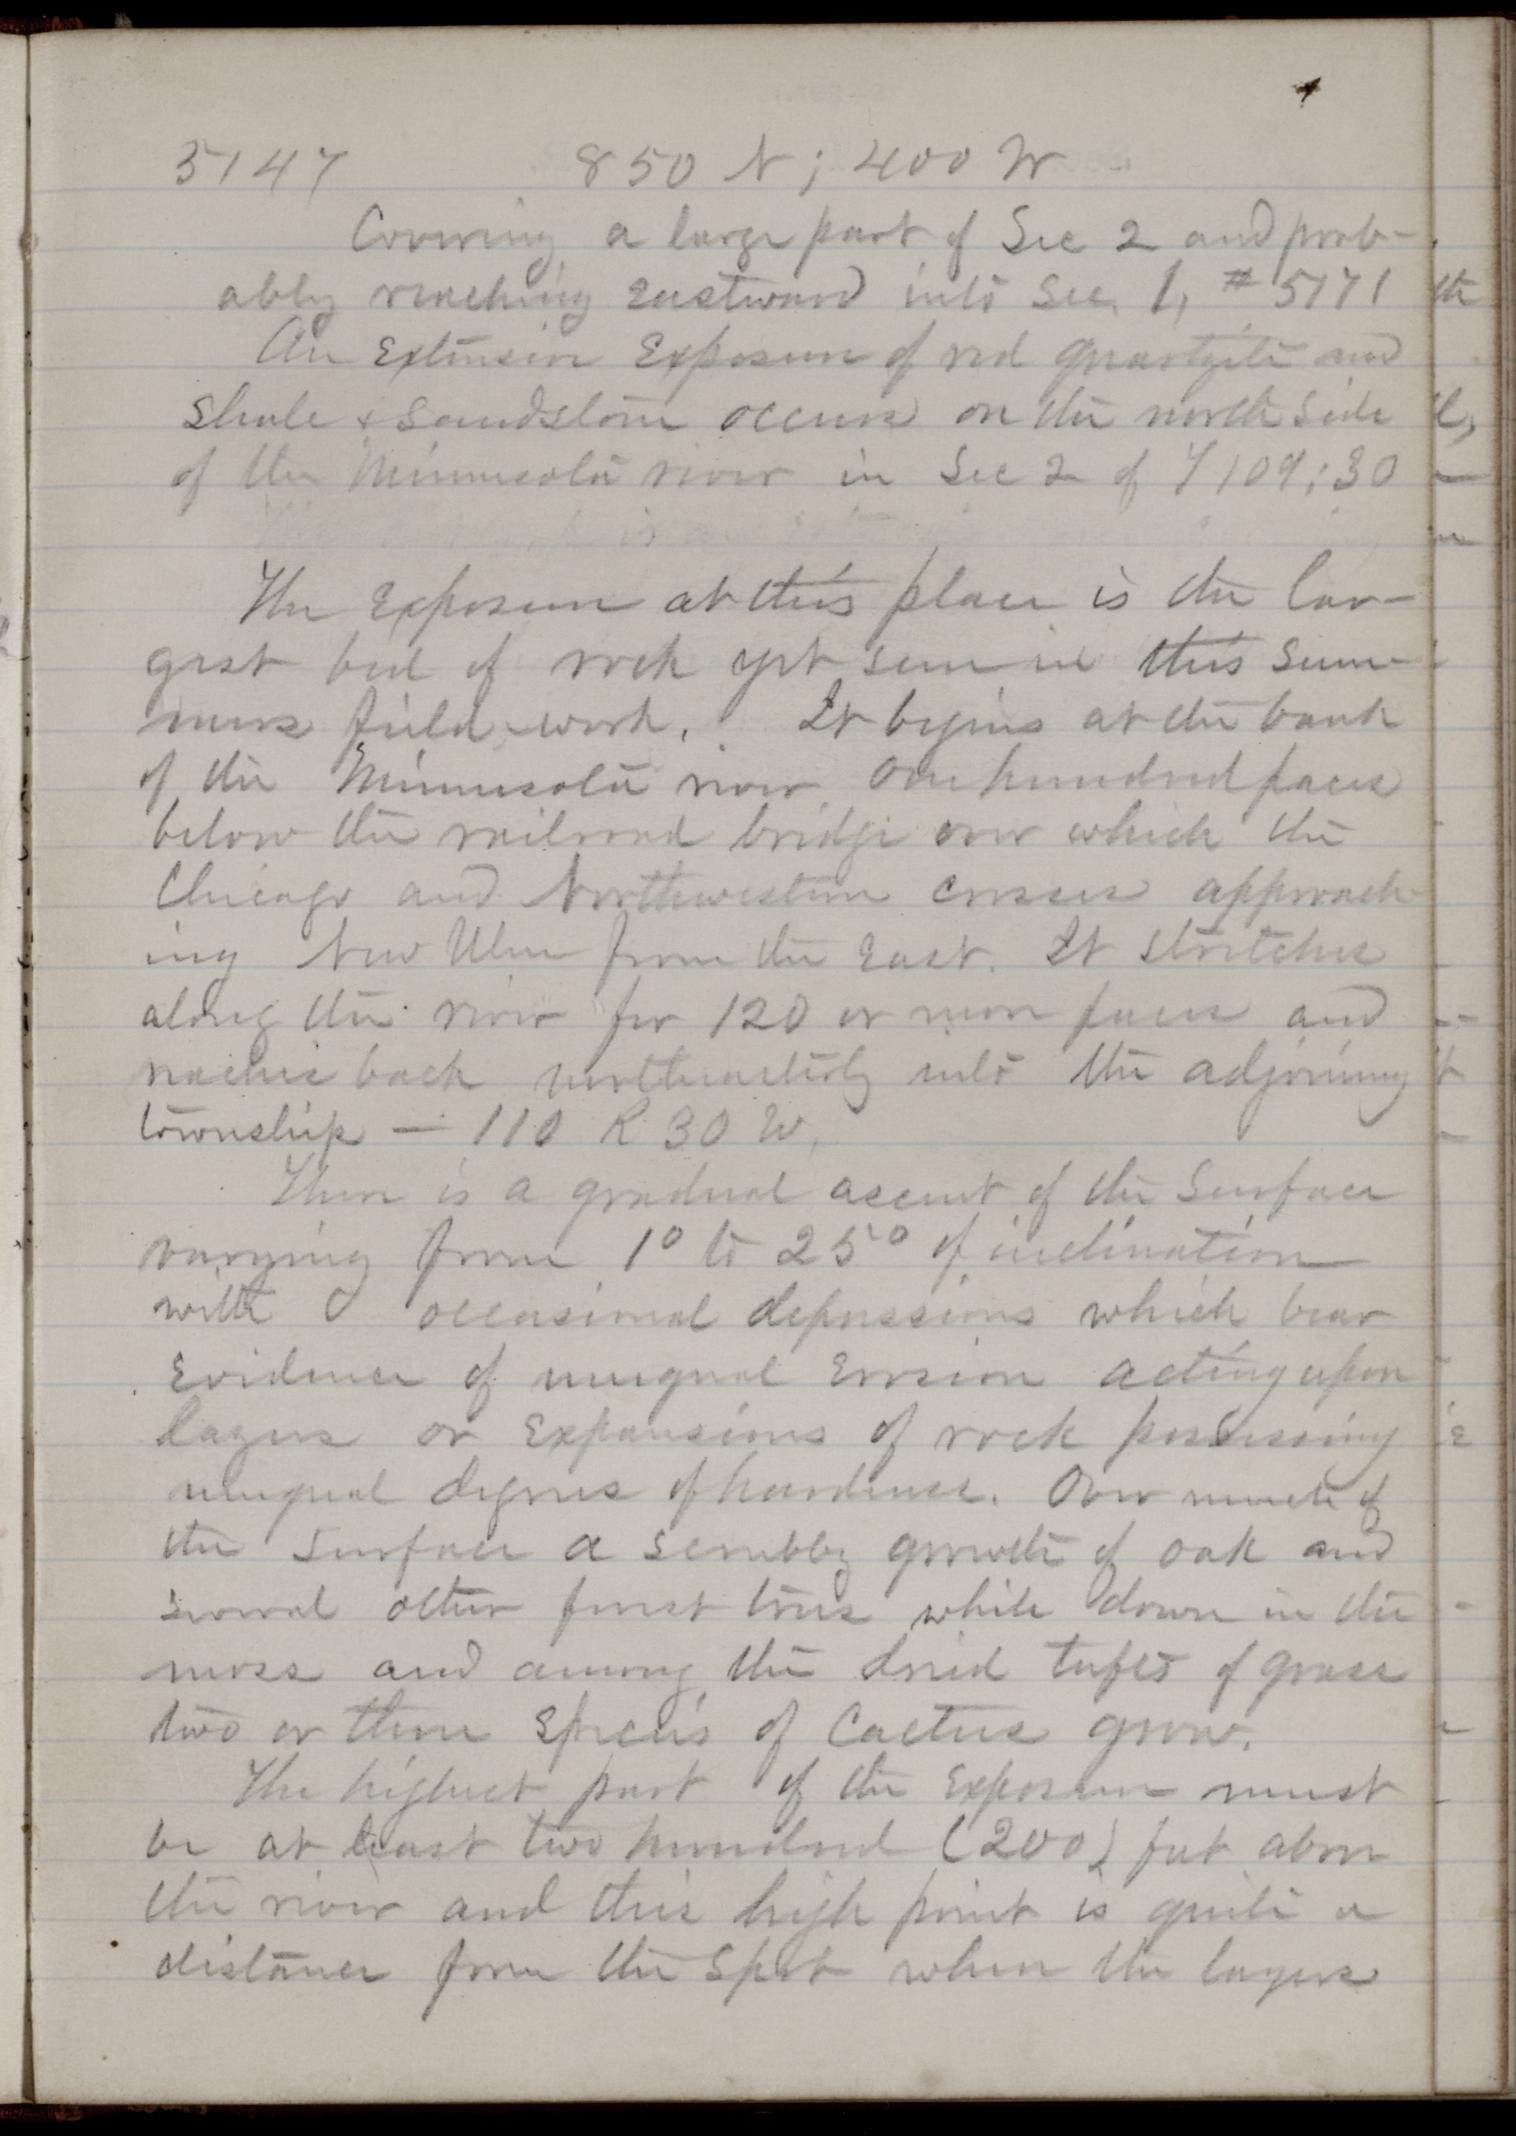 5147 850 N; 400 W
Covering a large part of Sec 2 and prob-
ably reaching eastward into Sec. 1, # 5171
An Extensive Exposure of red quartzite and
shale & sandstone occurs on the north side
of the Minnesota river in Sec 2 of T 109; 30
The Exposure at this place is the lar-
gest bed of rock yet seen in this sum-
mers field-work. It begins at the bank
of the Minnesota river one hundred paces
below the railroad bridge over which the
Chicago and Northwestern crosses approach-
ing New Ulm from the East. It stretches
along the river for 120 or more paces and
reaches back northeasterly into the adjoining
township — 110 R 30 W.
There is a gradual ascent of the Surface
varying from 1° to 25° of inclination
with occasional depressions which bear
Evidence of unequal Erosion acting upon
layers or Expansions of rock possessing
unequal degrees of hardness. Over much of
the Surface a scrubby growth of oak and
several other forest trees while down in the
moss and among the dried tufts of grass
two or three species of Cactus grow.
The highest part of the Exposure must
be at least two hundred (200) feet above
the river and this high point is quite a
distance from the spot where the layers